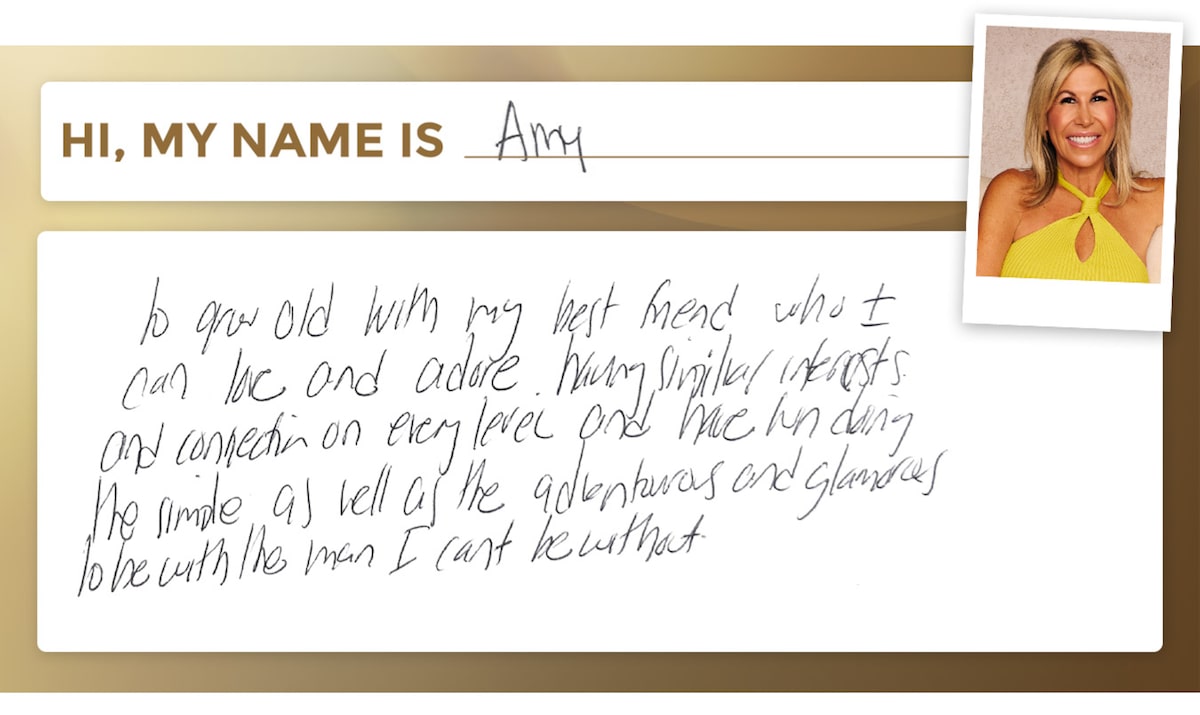 HI, MY NAME IS Amy
to grow old with my best friend who I
can love and adore. having similiar interests
and connection on every level and have fun doing
the simple as well as the adventurous and glamorous
to be with the man I cant be without.